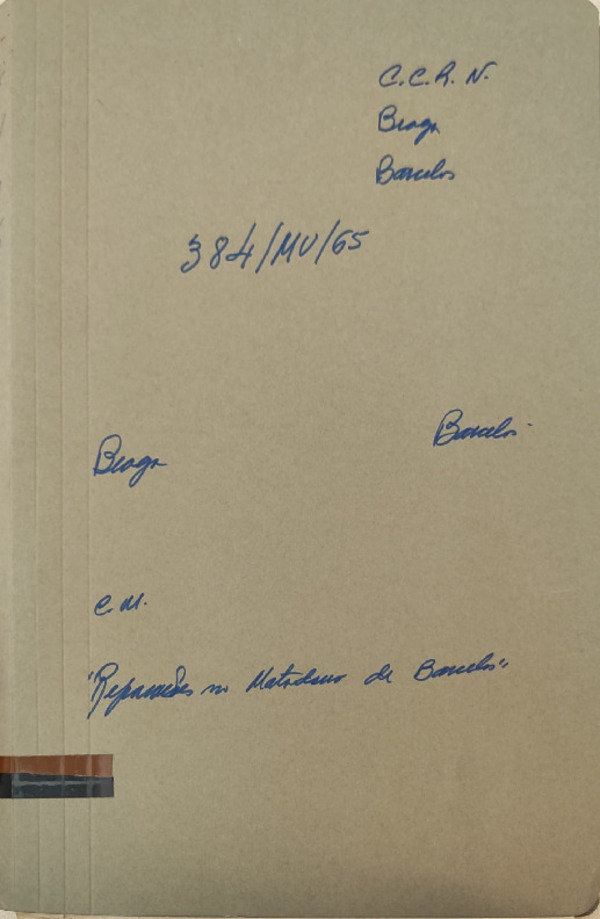 C.C.R.N.
Braga
Barcelos
384/MU/65
Barcelos
Braga
C.M.
"Reparações no Matadouro de Barcelos"